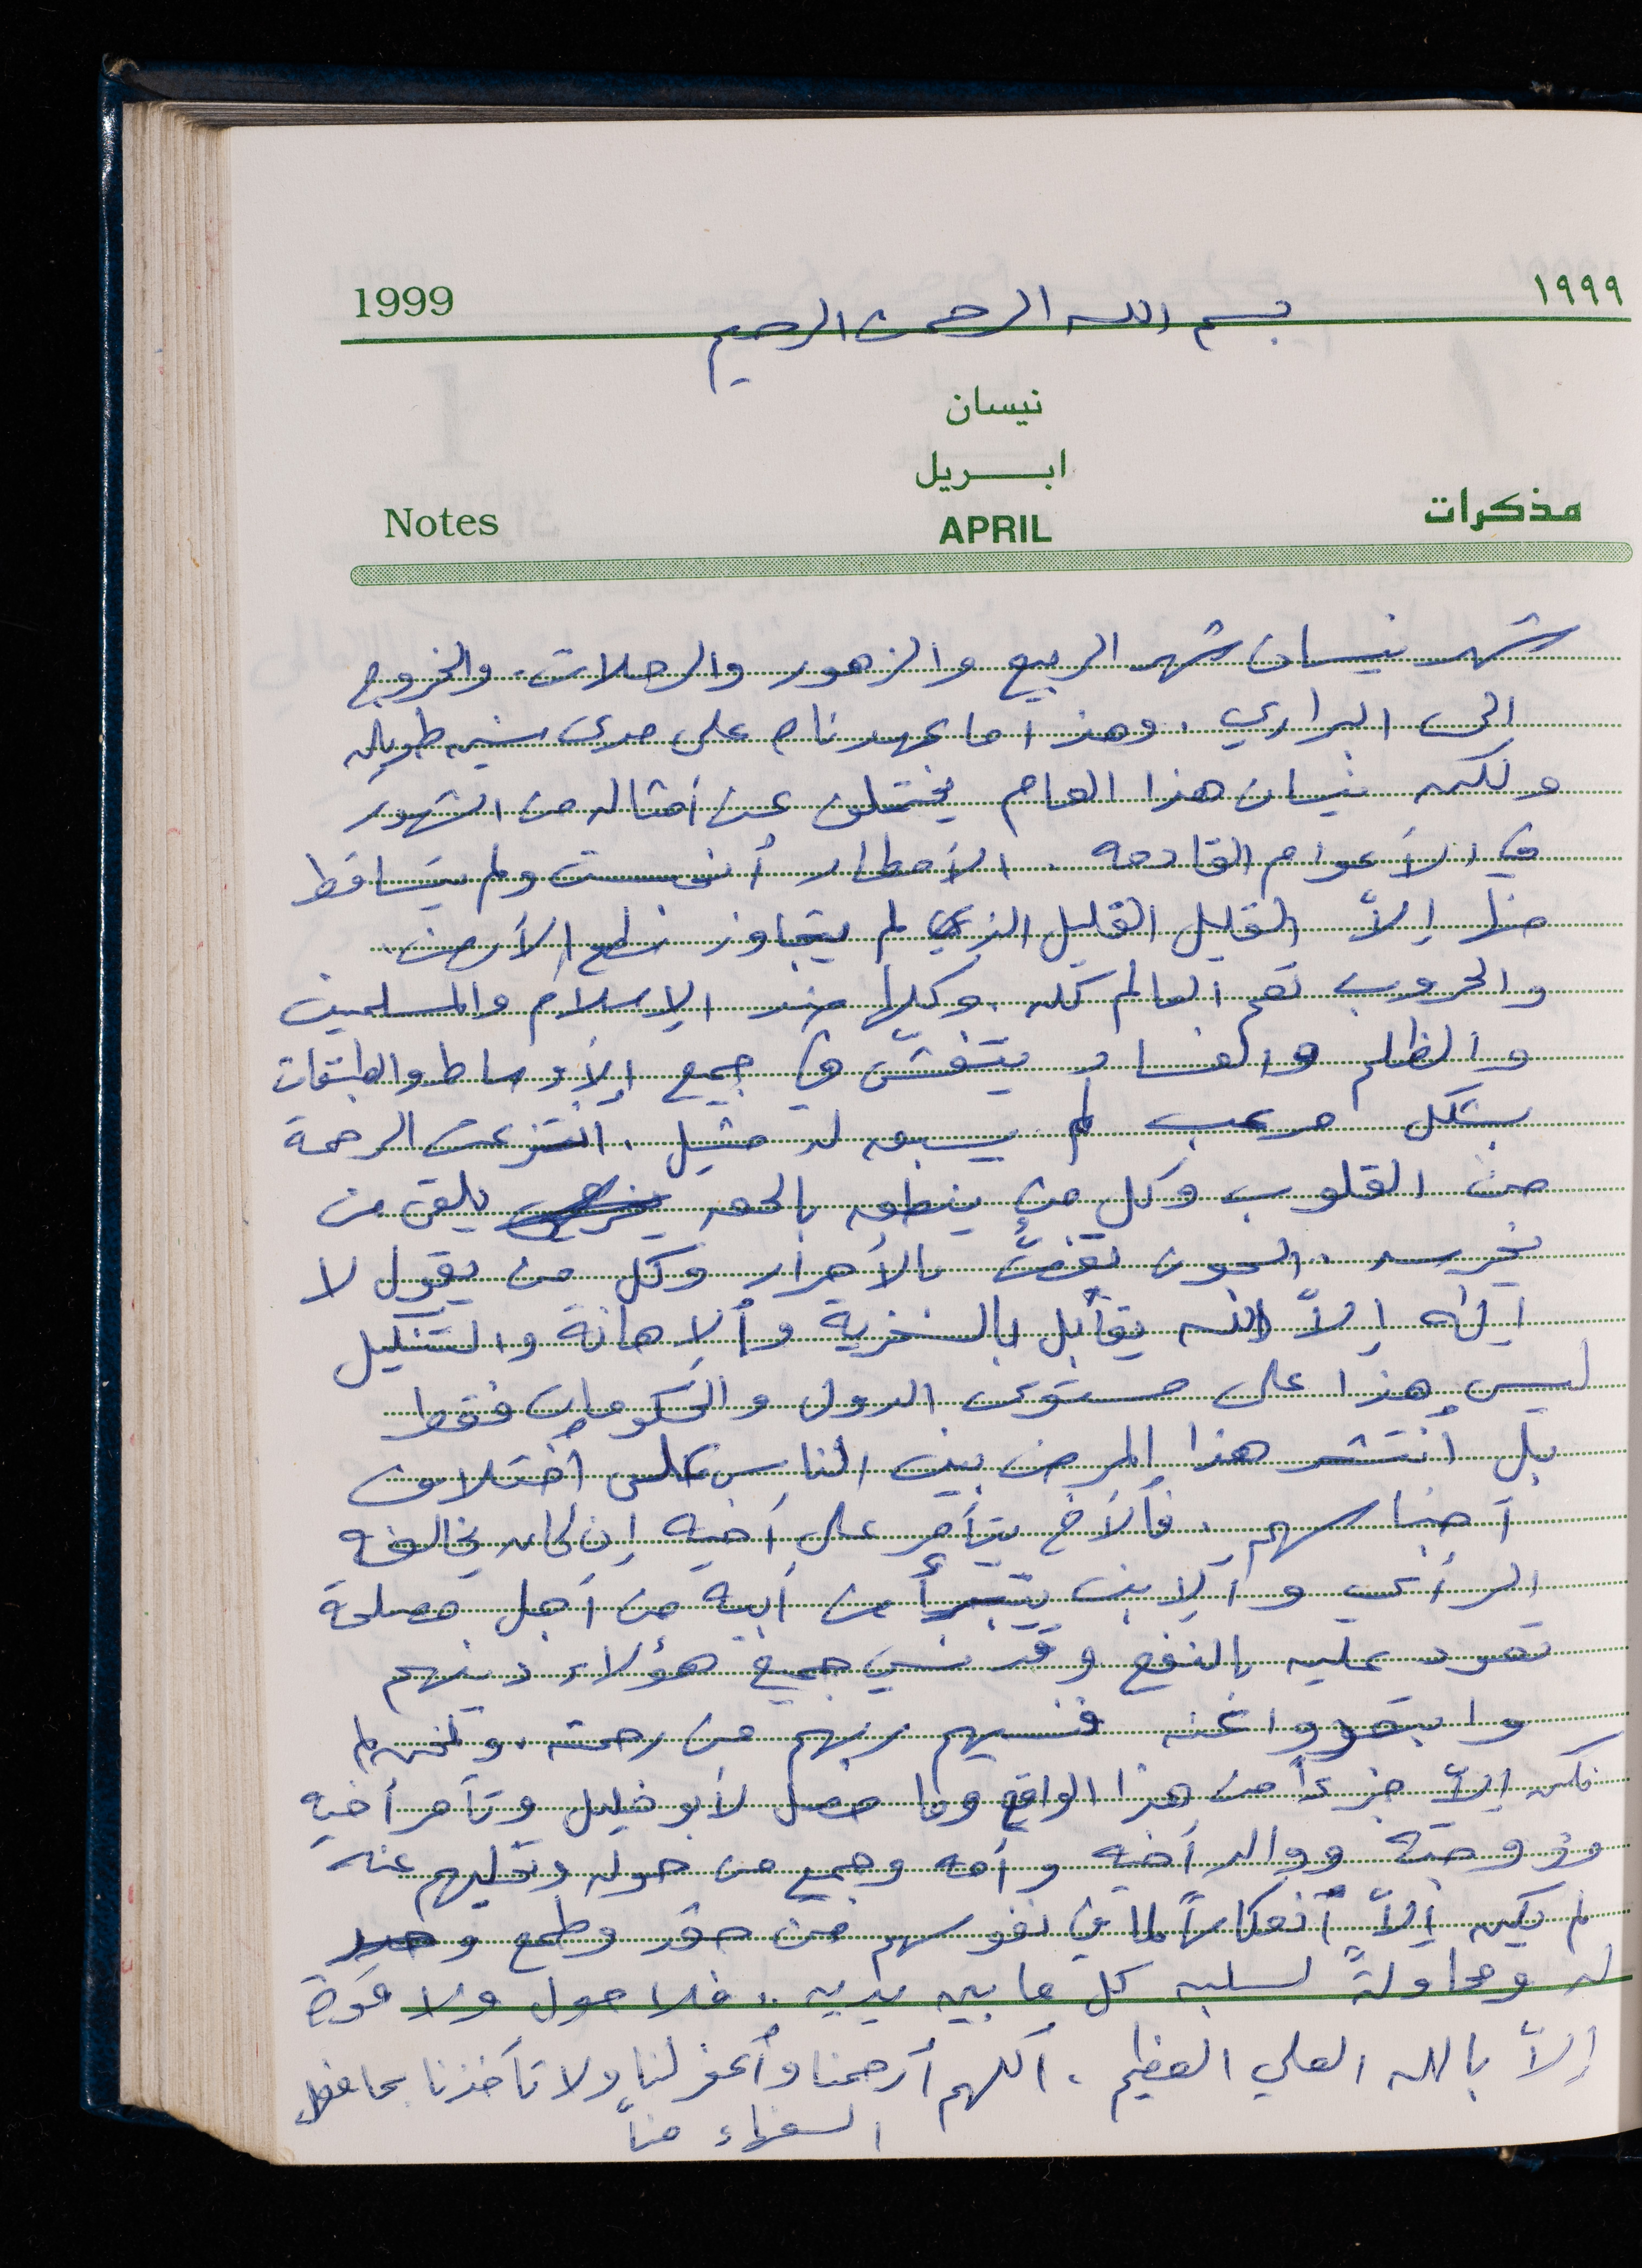 1999 بسم الله الرحمن الرحيم ١٩٩٩
نيسان
ابريل
Notes APRIL مذكرات
شهر نيسان شهر الربيع والزهور والرحلات. والخروج
الى البراري. وهذا ما عهدناه على مدى سنين طويله
ولكن نيسان هذا العام يختلف عن أمثاله من الشهور
في الأعوام القادمه. الأمطار أنحبست ولم يتساقط
منها إلاّ القليل القليل الذي لم يتجاوز الأرض.
والحروب تعم العالم كله. وكلها ضد الإسلام والمسلمين
والظلم والفساد يتفشّى في جميع الأوساط والطبقات
بشكل مرعب لم يسبق له مثيل. انتزعت الرحمة
من القلوب وكل من ينطق بالحق يلقى من
يخرسه. السجون تغصّ بالأحرار وكل من يقول لا
إله إلاّ الله يقابل بالسخرية والإهانة والتنكيل
ليس هذا على مستوى الدول والحكومات فقط
بل أنتشر هذا المرض بين الناس على أختلاف
أجناسهم. فألأخ يتآمر على أخيه إن كان يخالفه
الرأي وألإبن يتبرأ من أبيه من أجل مصلحة
تعود عليه بالنفع وقد نسي جميع هؤلاء دينهم
وابتعدوا عنه فنسيهم ربهم من رحمته. ونحن لم
نكن إلاّ جزءاً من هذا الواقع وما حصل لأبو خليل وتآمر أخيه
وزوجته ووالد أخيه وأمه وجميع من حوله وتخليهم عنه
لم يكن إلاّ أنعكاساً لما في نفوسهم من حقد وطمع وحسد
له ومحاولةً لسلبه كل ما بين يديه.. فلا حول ولا قوة
إلاّ بالله العلي العظيم. أللهم أرحمنا وأغفر لنا ولا تأخذنا بما فعل
السفهاء منّا